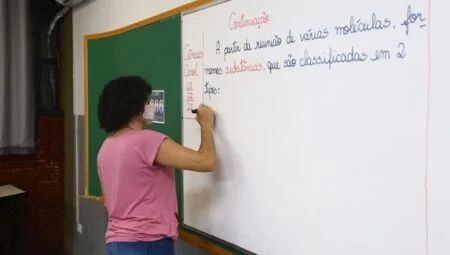 Continuação
A partir da reunião de várias moléculas, for-
mamos substâncias, que são classificadas em 2
tipos:
Ciências
Geral